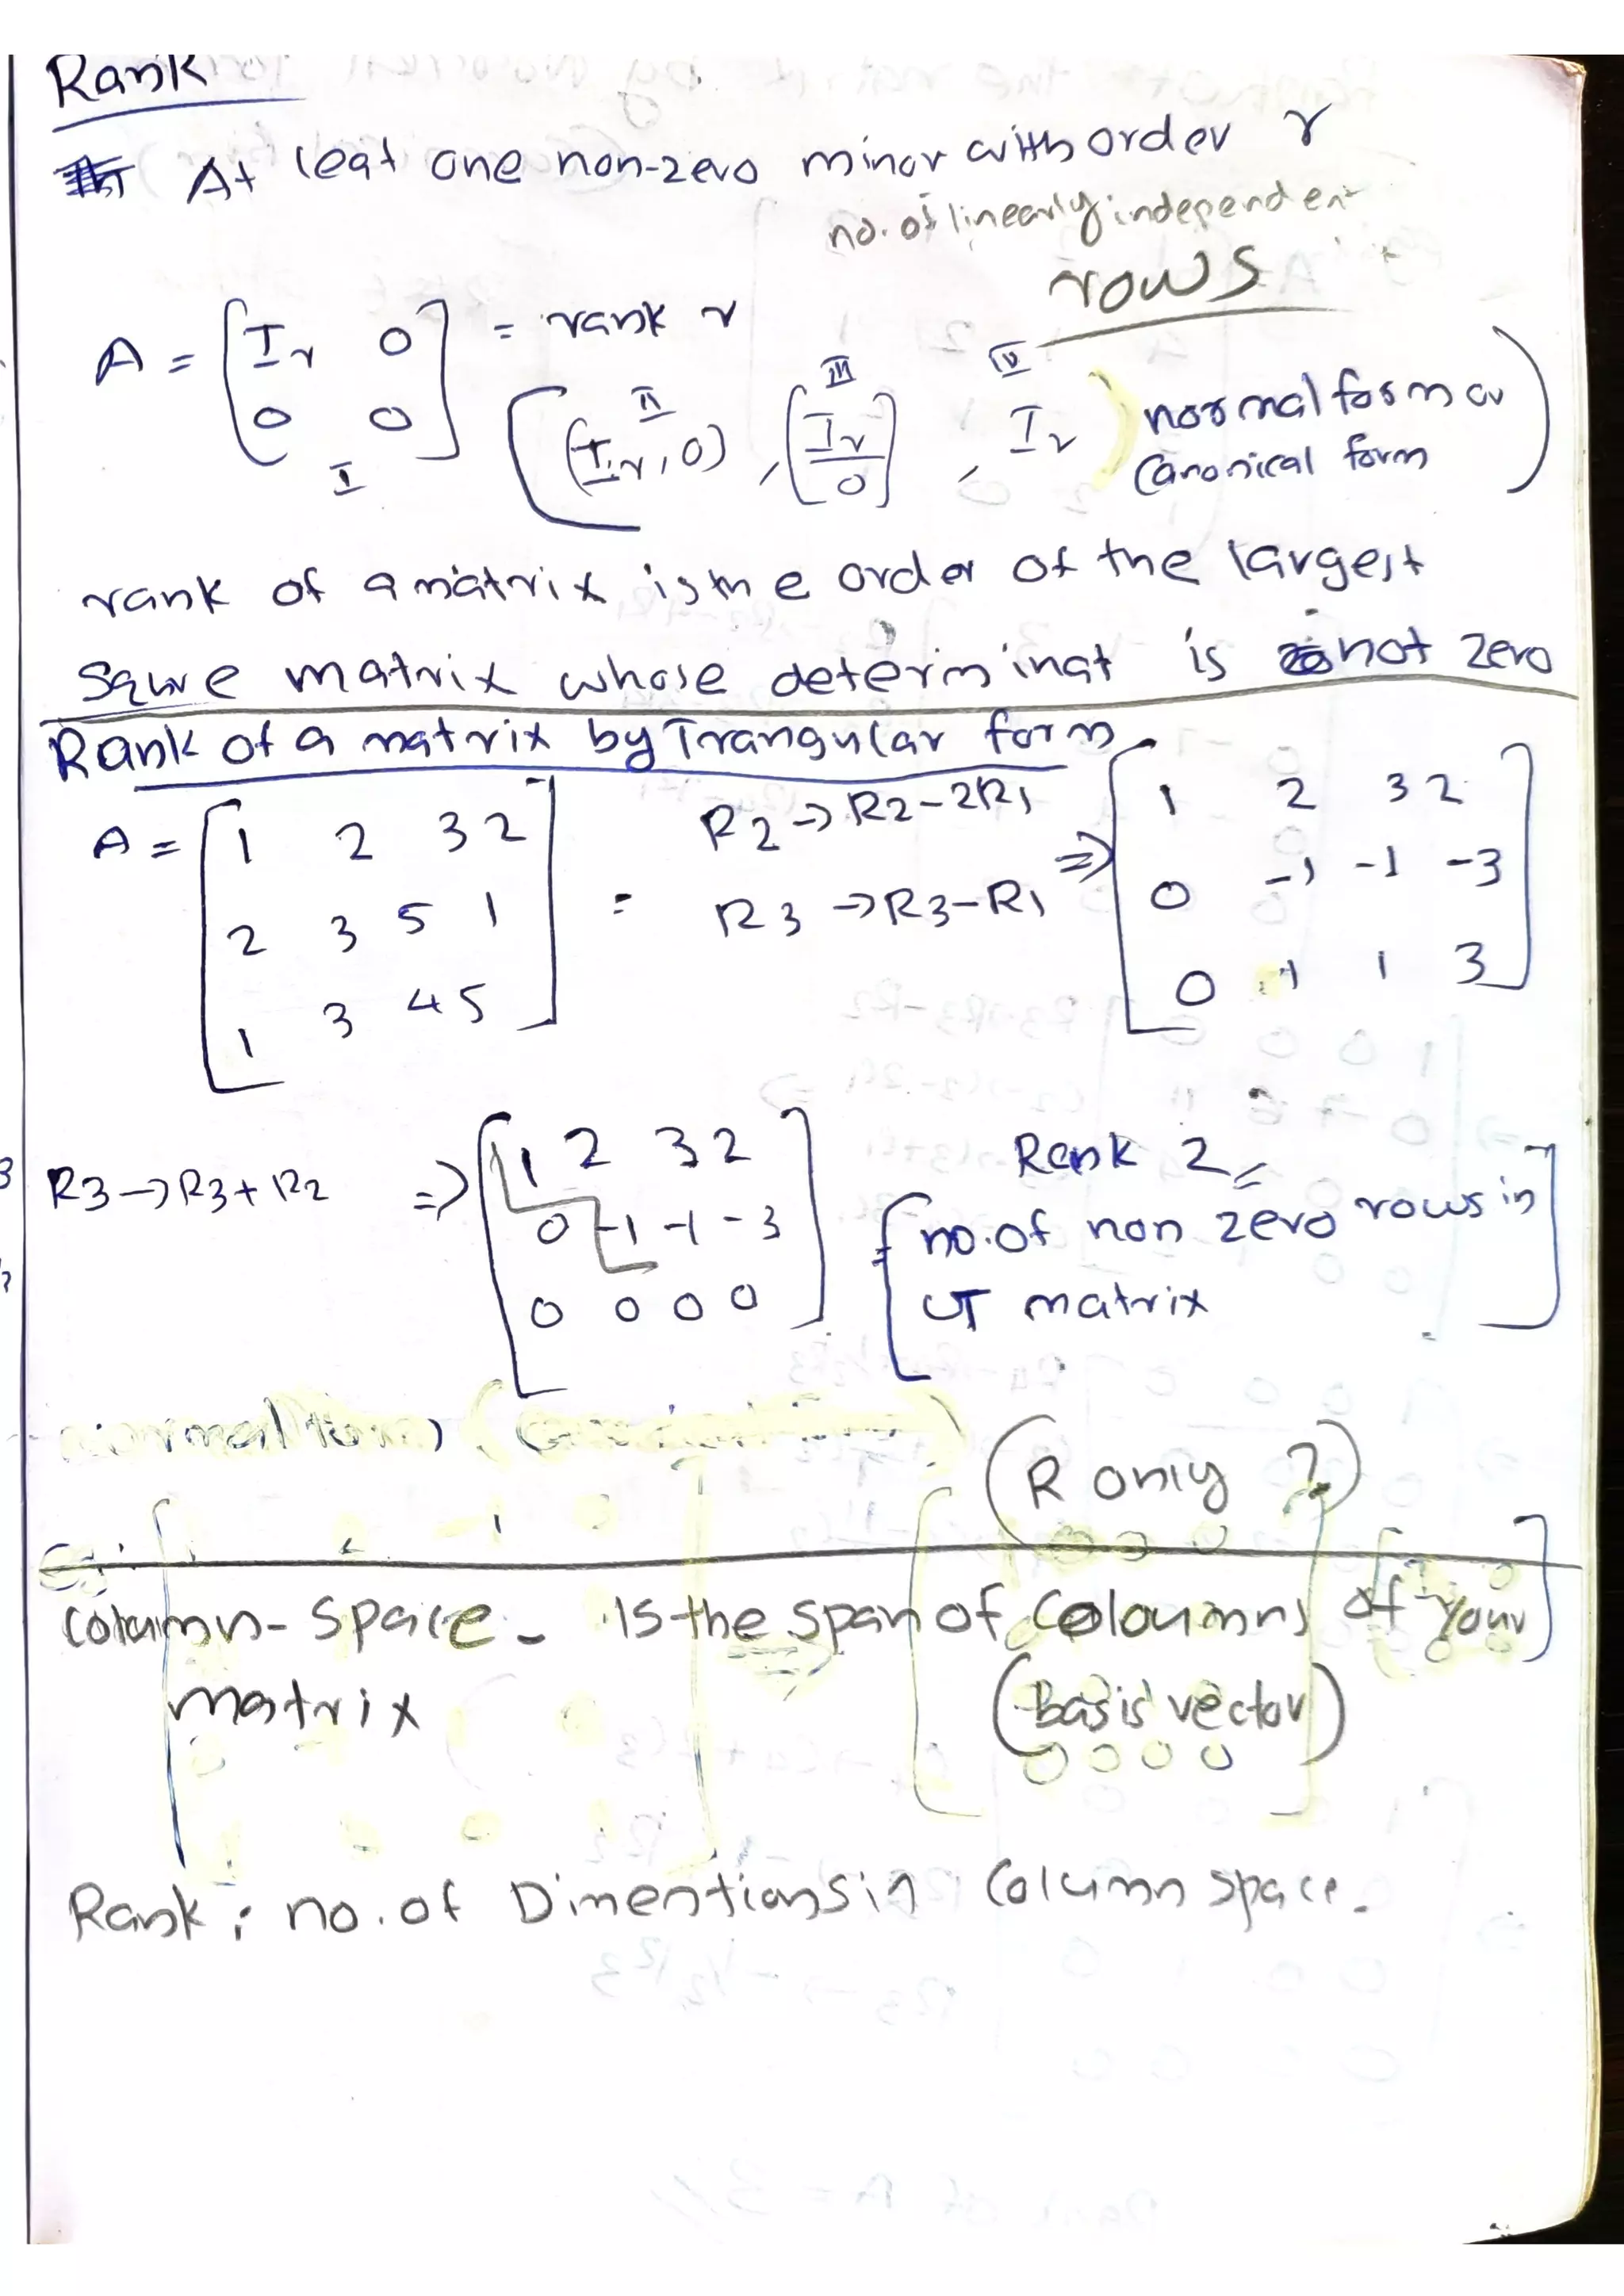 Rank
At leat one non-zero minor with order r
no. of linearly independent
rows
A = [ Ir 0 = rank r
0 0 ]
I
( II (Ir, 0) , III [Ir / 0] , IV Ir ) normal form or
Canonical form
rank of a matrix is the order of the largest
Squre matrix whose determinat is not zero
Rank of a matrix by Trangular form
A = [ 1 2 3 2
2 3 5 1
1 3 4 5 ]
= R2 → R2 - 2R1
R3 → R3 - R1
⇒ [ 1 2 3 2
0 -1 -1 -3
0 1 1 3 ]
R3 → R3 + R2 ⇒ [ 1 2 3 2
0 -1 -1 -3
0 0 0 0 ]
Rank 2
[ no. of non zero rows in
UT matrix ]
normal form
(R only ?)
Column-Space - Is the span of Coloumns of your
matrix (basis vector)
Rank : no. of Dimentions in Column space.